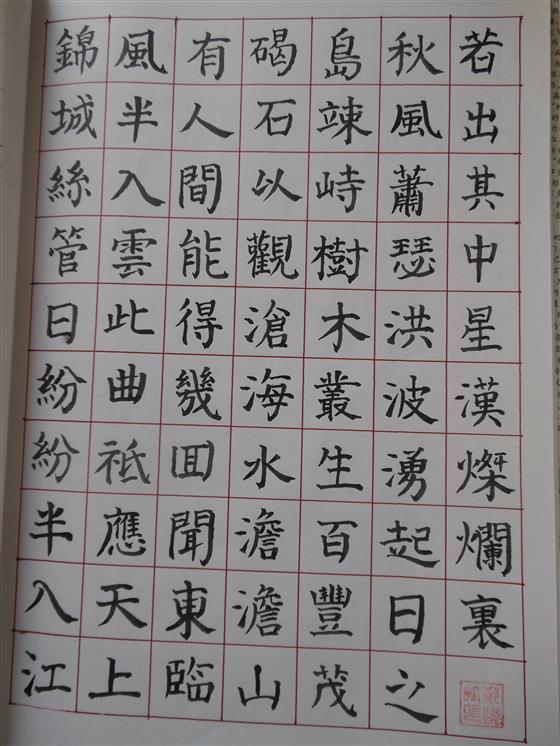 錦城絲管日紛紛半入江
風半入雲此曲祗應天上
有人間能得幾囬聞東臨
碣石以觀滄海水澹澹山
島竦峙樹木叢生百豐茂
秋風蕭瑟洪波湧起日之
若出其中星漢燦爛裏